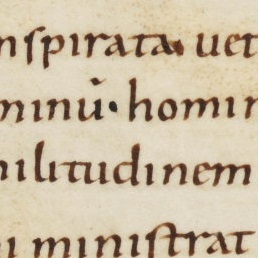 nspirata. uet
minū. homin
ilitudinem
ministrat